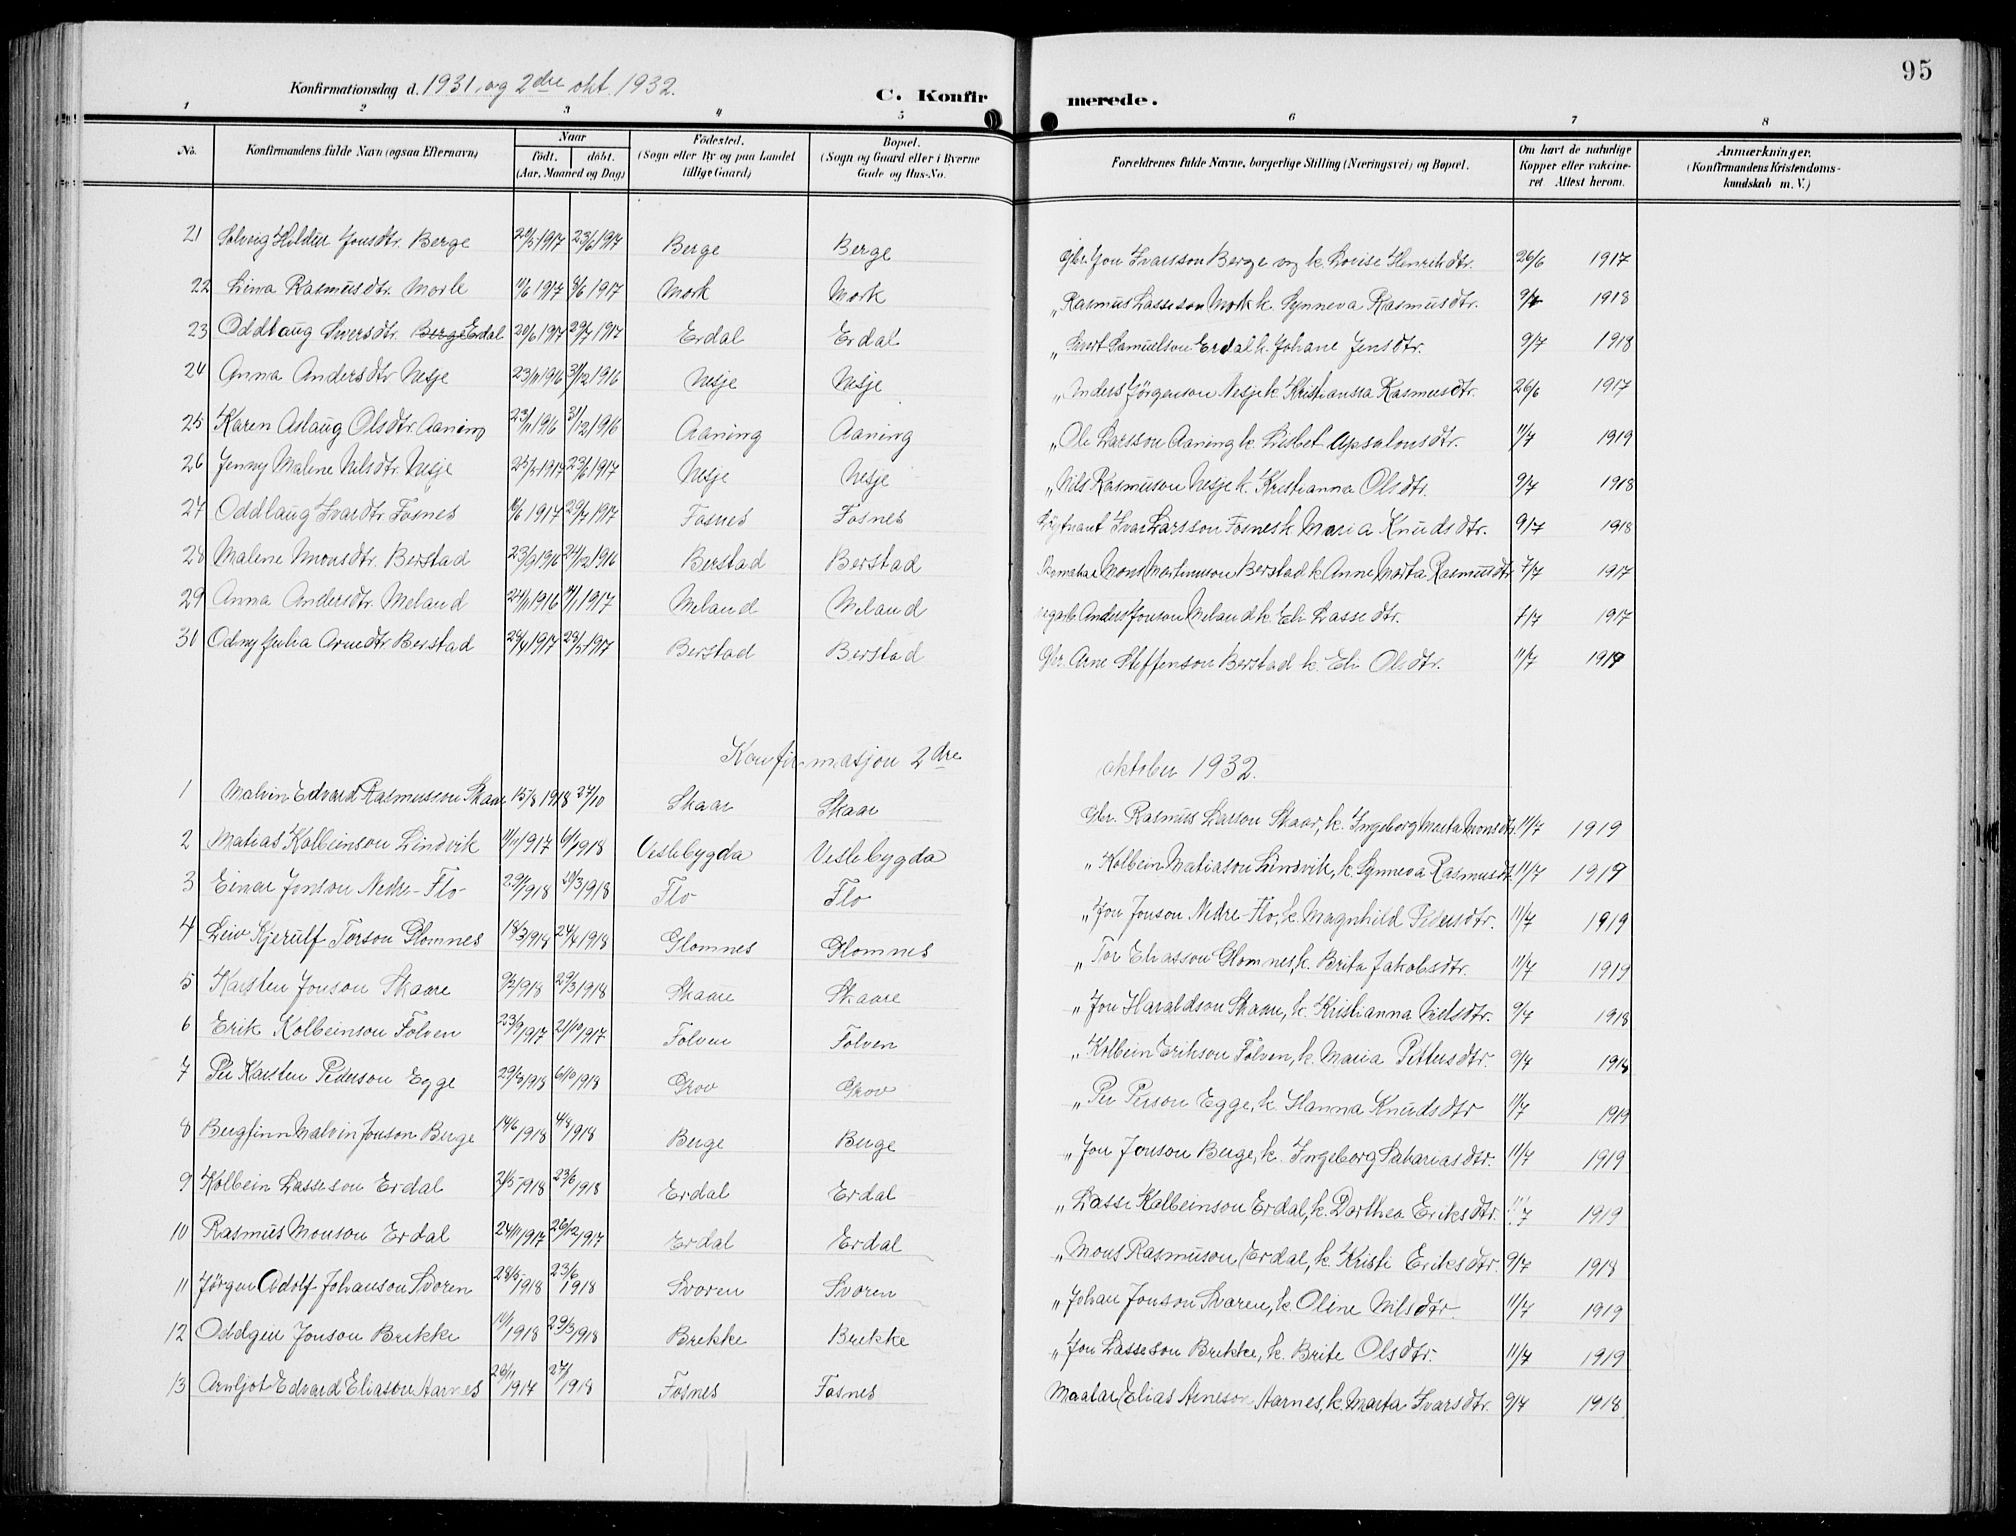 95
Konfirmationsdag d. 1931, og 2dre okt. 1932.
C. Konfirmerede.
1 2 3 4 5 6 7 8
No. Konfirmandens fulde Navn (ogsaa Efternavn) Naar født. døbt. (Aar, Maaned og Dag) Fødested. (Sogn eller By og paa Landet tillige Gaard) Bopæl. (Sogn og Gaard eller i Byerne Gade og Hus-No. Forældrenes fulde Navne, borgerlige Stilling (Næringsvei) og Bopæl. Om havt de naturlige Kopper eller vakcineret Attest herom. Anmærkninger. (Konfirmandens Kristendomskundskab m. V.)
21 Solveig Hildur Jonsdtr. Berge 20/5 1917 23/6 1917 Berge Berge Gbr. Jon Ivarsson Berge og k. Lovise Henrikdtr. 26/6 1917
22 Lina Rasmusdtr. Mork 11/6 1917 8/6 1917 Mork Mork " Rasmus Lasseson Mork k. Synneva Rasmusdtr. 1918
23 Oddlaug Siversdtr. Berge Erdal 20/6 1917 29/7 1917 Erdal Erdal " Sivert Samuelson Erdal k. Johane Jensdtr. 9/7 1918
24 Anna Andersdtr Nesje 23/11 1916 31/12 1916 Nesje Nesje " Anders Jörgenson Nesje k. Kristianna Rasmusdtr. 26/6 1917
25 Karen Aslaug Olsdtr. Aaning 23/11 1916 31/12 1916 Aaning Aaning " Ole Larsson Aaning k. Lisbet Apsalonsdtr. 11/7 1919
26 Jenny Malene Nilsdtr. Nesje 25/5 1917 23/6 1917 Nesje Nesje " Nils Rasmuson Nesje k. Kristianna Olsdtr. 9/7 1918
27 Oddlaug Ivarsdtr. Fosnes 10/6 1917 29/7 1917 Fosnes Fosnes Löytnant Ivar Larsson Fosnes k Maria Knudsdtr. 9/7 1918
28 Malene Monsdtr. Berstad 23/9 1916 24/12 1916 Berstad Berstad Skomakar Mons Martinusson Berstad k. Anne Marta Rasmusdtr 7/7 1917
29 Anna Andersdtr. Meland 24/11 1916 14/1 1917 Meland Meland Anders Jonson Meland k. Eli Lassedtr. 7/7 1917
31 Odny Julia Arnedtr Berstad 28/4 1917 23/5 1917 Berstad Berstad Gbr. Arne Steffenson Berstad k. Eli Olsdtr. 11/7 1919
Konfirmasjon 2dre oktober 1932.
1 Malvin Edvard Rasmusson Skaar 15/8 1918 27/10 Skaar Skaar Gbr. Rasmus Larson Skaar, k. Ingeborg Marta Monsdtr. 11/7 1919
2 Matias Kolbeinson Lindvik 11/11 1917 6/1 1918 Veslebygda Veslebygda " Kolbein Matiason Lindvik, k. Synneva Rasmusdt. 11/7 1919
3 Einar Jonson Nedre-Flo 29/1 1918 10/3 1918 Flo Flo " Jon Jonson Nedre-Flo, k. Magnhild Pedersdtr. 11/7 1919
4 Leiv Kjerulf Torson Glomnes 18/3 1918 24/4 1918 Glomnes Glomnes " Tor Eliasson Glomnes, k. Brita Jakobsdtr. 11/7 1919
5 Karsten Jonson Skaare 9/2 1918 29/3 1918 Skaare Skaare " Jon Haraldson Skaare, k. Kristianna Nilsdtr. 9/7 1918
6 Erik Kolbeinson Folven 23/9 1917 21/10 1917 Folven Folven " Kolbein Erikson Folven, k. Maria Pettersdtr. 9/7 1918
7 Per Karsten Pederson Egge 29/8 1918 6/10 1918 Grov Grov " Per Person Egge, k. Hanna Knudsdtr 11/7 1919
8 Bergfinn Malvin Jonson Berge 14/6 1918 4/8 1918 Berge Berge " Jon Jonson Berge, k. Ingeborg Sakariasdtr. 11/7 1919
9 Kolbein Lasseson Erdal 2/5 1918 23/6 1918 Erdal Erdal " Lasse Kolbeinson Erdal, k. Dorthea Eriksdtr. 11/7 1919
10 Rasmus Monson Erdal 24/11 1917 26/12 1917 Erdal Erdal " Mons Rasmuson Erdal, k. Kristi Eriksdtr. 9/7 1918
11 Jörgen Adolf Johanson Svoren 28/5 1918 23/6 1918 Svoren Svoren " Johan Jonson Svoren, k. Oline Nilsdtr. 11/7 1919
12 Oddgeir Jonson Brekke 11/1 1918 29/3 1918 Brekke Brekke " Jon Lasseson Brekke, k. Brite Olsdtr. 11/7 1919
13 Arnljot Edvard Eliason Aarnes 26/11 1917 27/1 1918 Fosnes Fosnes Maalar Elias Arneson Aarnes, k. Marta Ivarsdtr. 9/7 1918